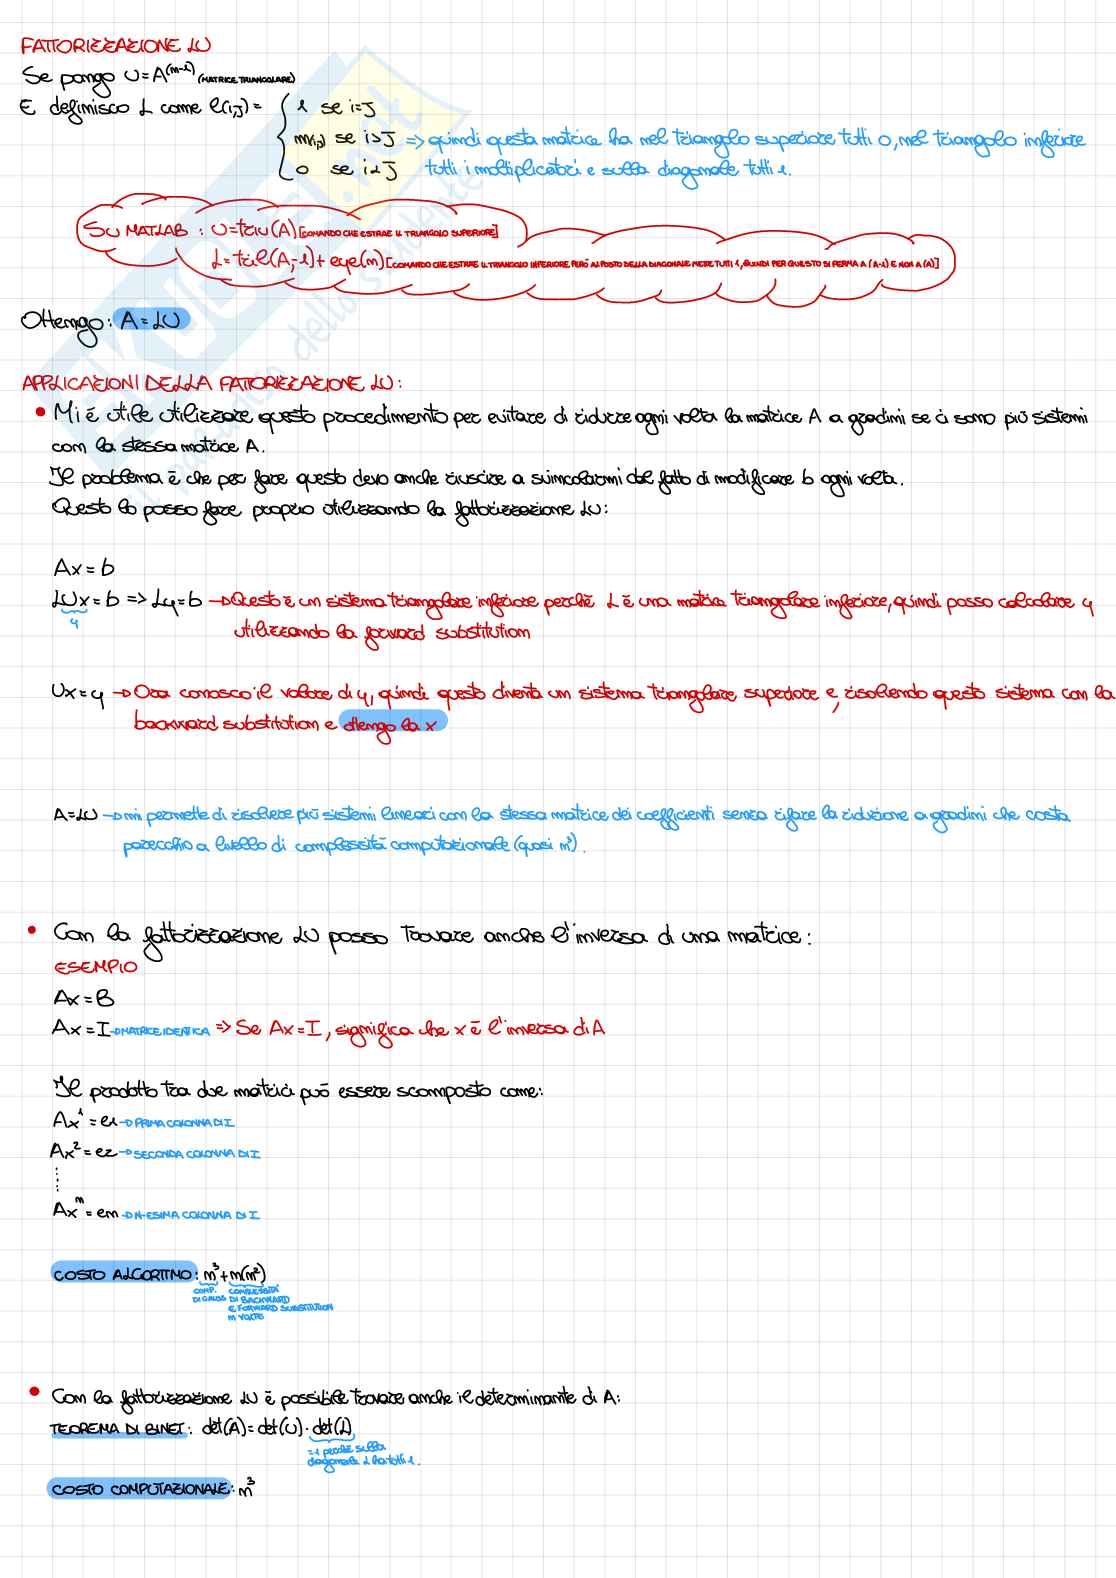 FATTORIZZAZIONE LU
Se pongo U=A^(n-1) (MATRICE TRIANGOLARE)
E definisco L come l(i,j)= { 1 se i=J
m(i,j) se i>J => quindi questa matrice ha nel triangolo superiore tutti 0, nel triangolo inferiore
0 se i<J tutti i moltiplicatori e sulla diagonale tutti 1.
SU MATLAB : U=triu(A) [COMANDO CHE ESTRAE IL TRIANGOLO SUPERIORE]
L=tril(A,-1)+eye(n) [COMANDO CHE ESTRAE IL TRIANGOLO INFERIORE, PERÒ AL POSTO DELLA DIAGONALE METTE TUTTI 1, QUINDI PER QUESTO SI FERMA A (A-1) E NON A (A)]
Ottengo: A=LU
APPLICAZIONI DELLA FATTORIZZAZIONE LU:
• Mi è utile utilizzare questo procedimento per evitare di ridurre ogni volta la matrice A a gradini se ci sono più sistemi
con la stessa matrice A.
Il problema è che per fare questo devo anche riuscire a svincolarmi dal fatto di modificare b ogni volta.
Questo lo posso fare proprio utilizzando la fattorizzazione LU:
Ax=b
LUx=b => Ly=b → Questo è un sistema triangolare inferiore perchè L è una matrice triangolare inferiore, quindi posso calcolare y
y
utilizzando la forward substitution
Ux=y → Ora conosco il valore di y, quindi questo diventa un sistema triangolare superiore e, risolvendo questo sistema con la
backward substitution e ottengo la x
A=LU → mi permette di risolvere più sistemi lineari con la stessa matrice dei coefficienti senza rifare la riduzione a gradini che costa
parecchio a livello di complessità computazionale (quasi n³).
• Con la fattorizzazione LU posso trovare anche l'inversa di una matrice:
ESEMPIO
Ax=B
Ax=I → MATRICE IDENTICA => Se Ax=I, significa che x è l'inversa di A
Il prodotto tra due matrici può essere scomposto come:
Ax¹=e1 → PRIMA COLONNA DI I
Ax²=e2 → SECONDA COLONNA DI I
⋮
Axⁿ=en → N-ESIMA COLONNA DI I
COSTO ALGORITMO: n³+n(n²)
COMP. COMPLESSITÀ
DI GAUSS DI BACKWARD
E FORWARD SUBSTITUTION
N VOLTE
• Con la fattorizzazione LU è possibile trovare anche il determinante di A:
TEOREMA DI BINET: det(A)=det(U)·det(L)
=1 perchè sulla
diagonale L ha tutti 1.
COSTO COMPUTAZIONALE: n³